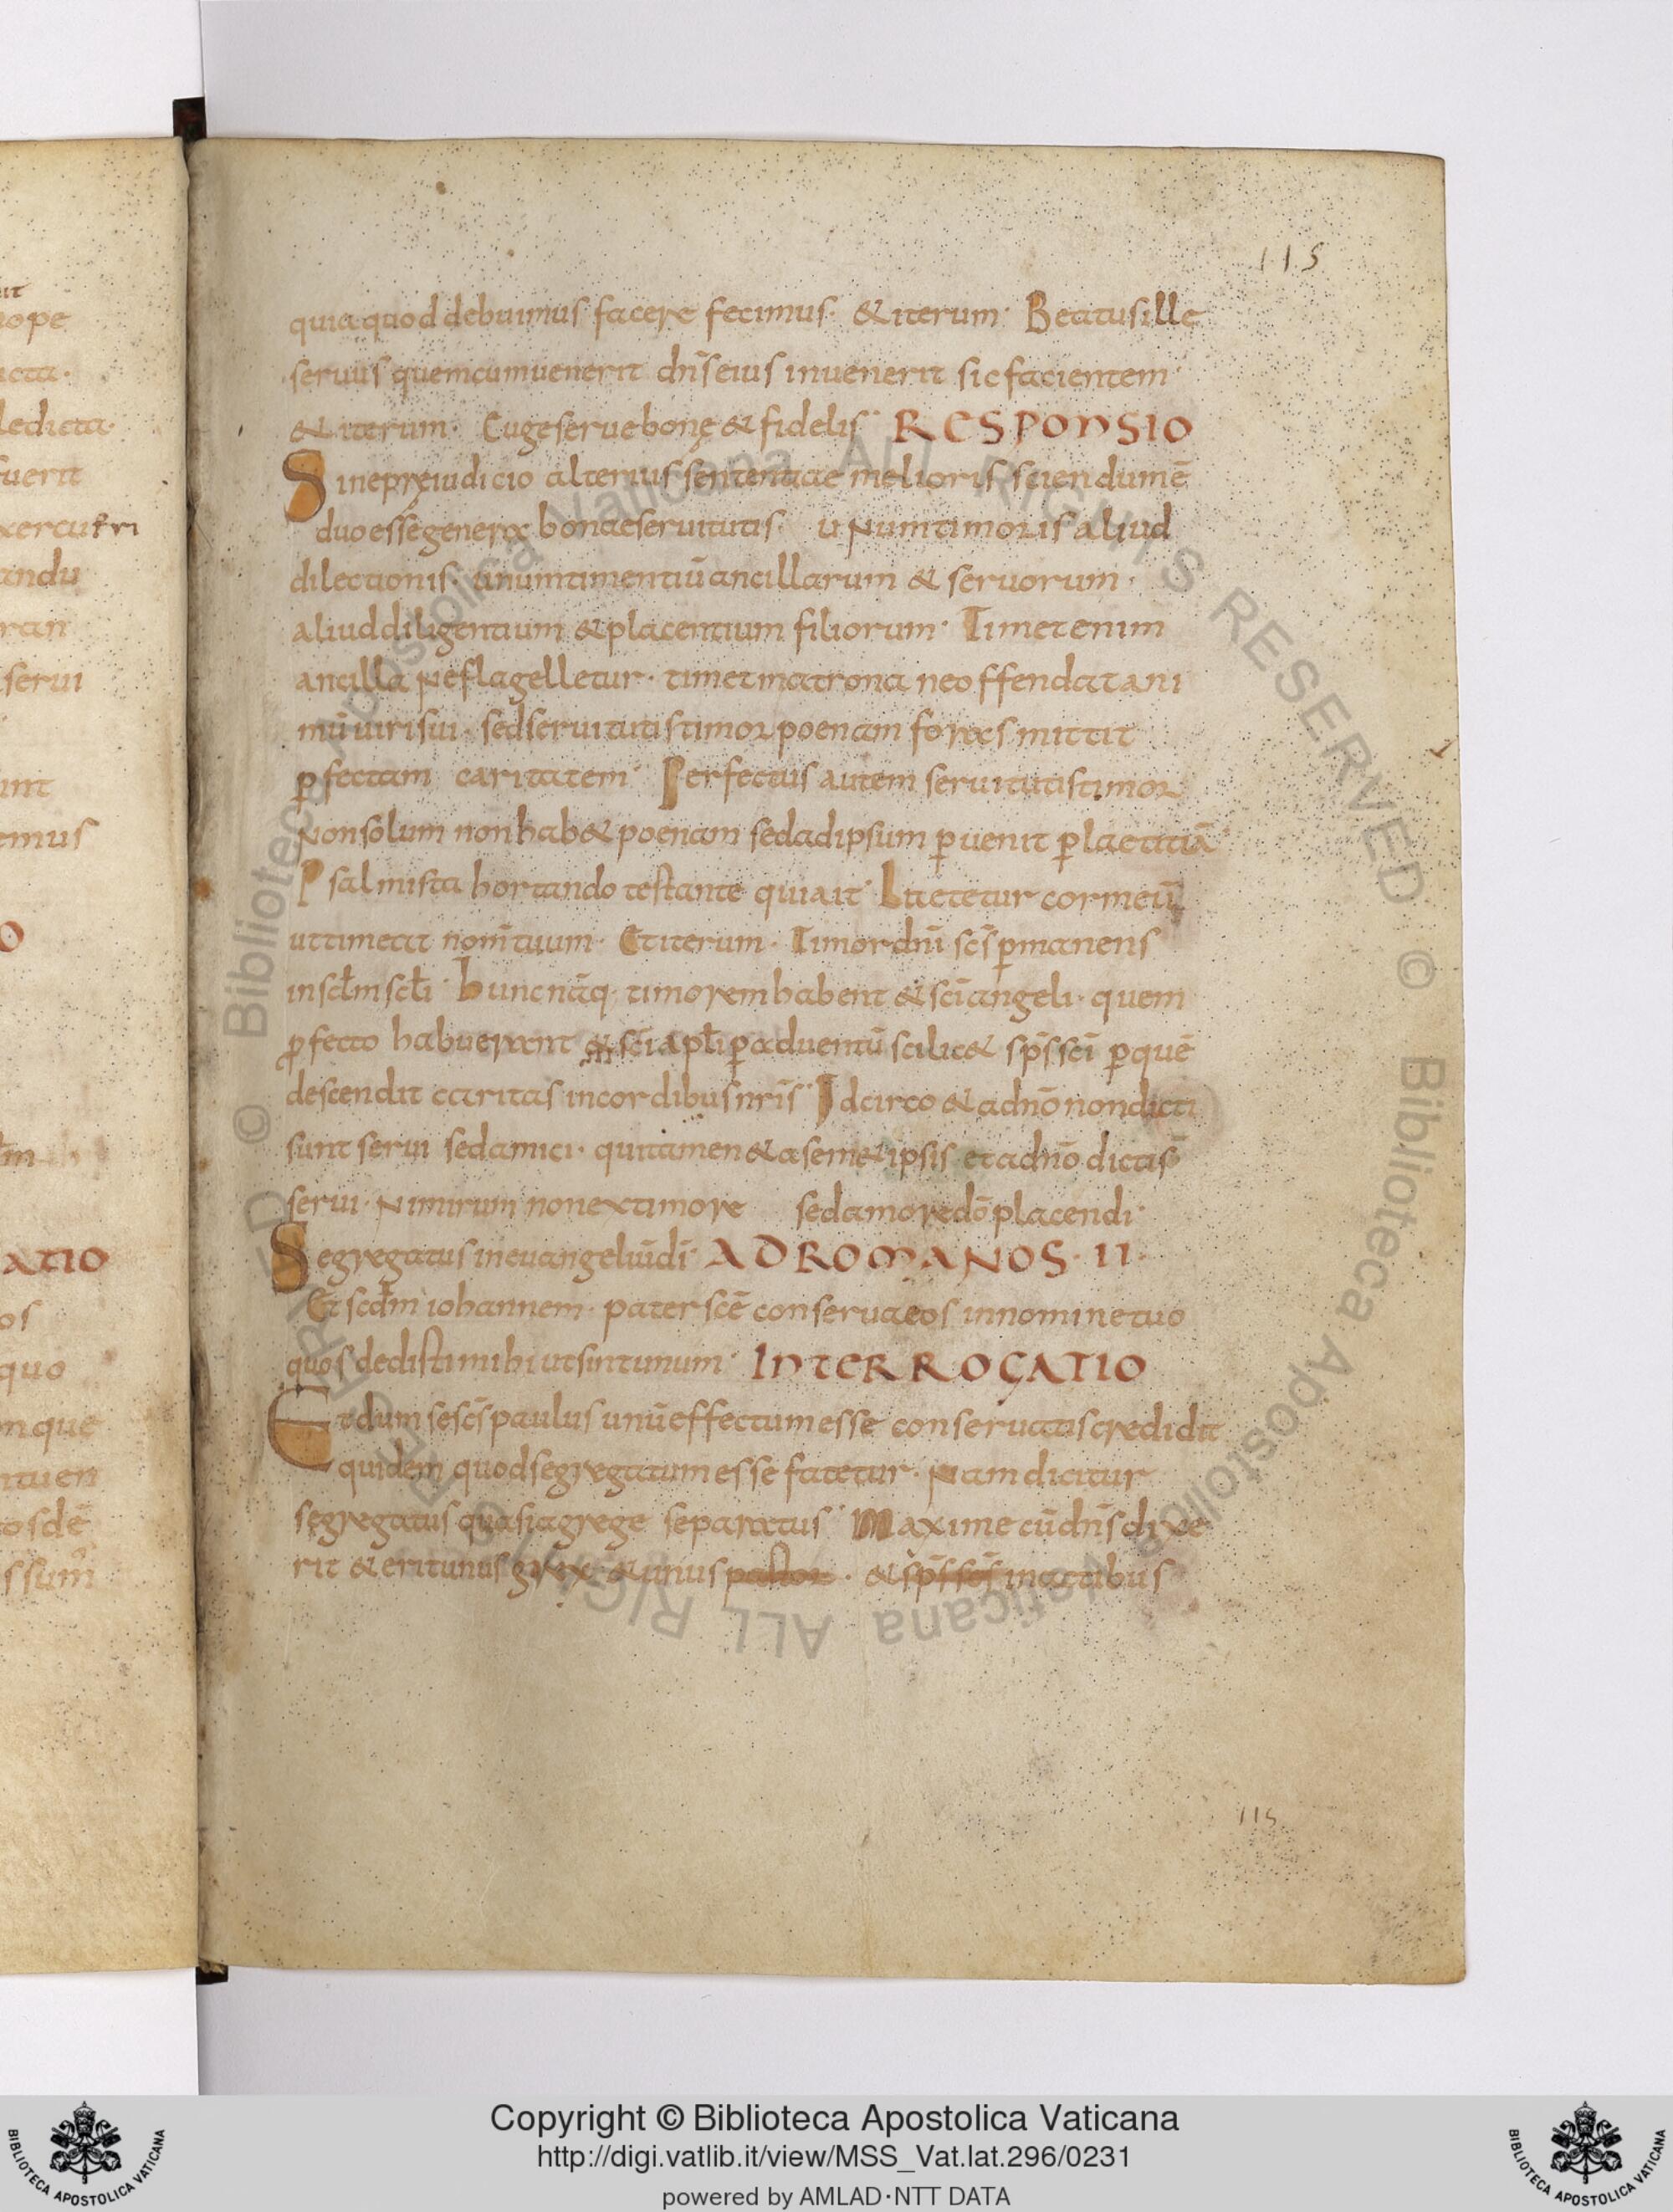 115
quia quod debuimus facere fecimus· & iterum· Beatus ille
seruus quem cum uenerit dn̄s eius inuenerit sic facientem·
& iterum· Euge serue bonę & fidelis· RESPONSIO
Sine pręiudicio alterius sententiae melioris sciendum ē
duo esse genera bonae seruitutis· unum timoris aliud
dilectionis· unum timentiū ancillarum & seruorum·
aliud diligentium & placentium filiorum· Timet enim
ancilla ne flagelletur· timet matrona ne offendat ani
mū uiri sui· sed seruitutis timor poenam foras mittit
ꝑfectam caritatem· Perfectus autem seruitutis timor
non solum non hab& poenam sed ad ipsum ꝑuenit ꝑ laetitiā·
Psalmista hortando testante qui ait· Laetetur cor meū
ut timeat nom̄ tuum· Et iterum· Timor dn̄i scs̄ ꝑmanens
in scl̄m scl̄i· hunc nāq· timorem habent & sc̄i angeli· quem
ꝓfecto habuerant & sc̄i apl̄i ꝑ aduentū scilic& sp̄s sc̄i ꝑ quē
descendit caritas in cordibus nr̄is· Idcirco & a dn̄o non dicti
sunt serui sed amici· qui tamen & a sem&ipsis et a dn̄o dicti s̄
serui· Nimirum non ex timore sed amore dō placendi·
Segregatus in euangeliū di· AD ROMANOS· II·
Et scd̄m iohannem· pater sc̄e conserua eos in nomine tuo
quos dedisti mihi ut sint unum· INTERROGATIO
Et dum se scs̄ paulus unū effectum esse conseruatis credidit
quidem quod segregatum esse fatetur· Nam dicitur
segregatus quasi a grege separatus· Maxime cū dn̄s dixe
rit & erit unus grex· & unus pastor· & sp̄s scs̄ in actibus
115
ut
nope
icta·
ledicta·
fuerit
xercu fri
andu
ran
serui
unt
emus
O
ATIO
os
quo
nque
ntuen
os dē
© Biblioteca Apostolica Vaticana ALL RIGHTS RESERVED
© Biblioteca Apostolica Vaticana ALL RIGHTS RESERVED
Copyright © Biblioteca Apostolica Vaticana
http://digi.vatlib.it/view/MSS_Vat.lat.296/0231
powered by AMLAD·NTT DATA
BIBLIOTECA APOSTOLICA VATICANA
BIBLIOTECA APOSTOLICA VATICANA